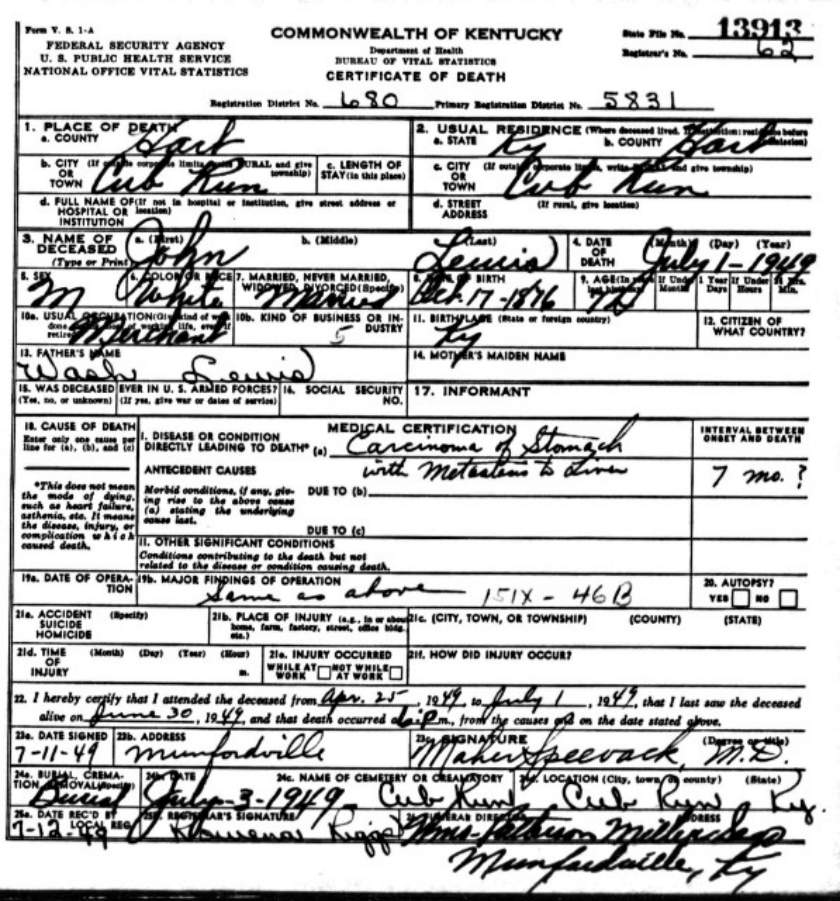 Form V. S. 1-A
FEDERAL SECURITY AGENCY
U. S. PUBLIC HEALTH SERVICE
NATIONAL OFFICE VITAL STATISTICS
COMMONWEALTH OF KENTUCKY
Department of Health
BUREAU OF VITAL STATISTICS
CERTIFICATE OF DEATH
State File No. 13913
Registrar's No. 62
Registration District No. 680 Primary Registration District No. 5831
1. PLACE OF DEATH
a. COUNTY Hart
2. USUAL RESIDENCE (Where deceased lived. If institution: residence before admission)
a. STATE Ky b. COUNTY Hart
b. CITY (If outside corporate limits, RURAL and give township)
OR
TOWN Cub Run
c. LENGTH OF
STAY (in this place)
c. CITY (If outside corporate limits, write RURAL and give township)
OR
TOWN Cub Run
d. FULL NAME OF (If not in hospital or institution, give street address or location)
HOSPITAL OR
INSTITUTION
d. STREET (If rural, give location)
ADDRESS
3. NAME OF DECEASED
(Type or Print)
a. (First) John b. (Middle) c. (Last) Lewis
4. DATE OF DEATH (Month) (Day) (Year)
July 1-1949
5. SEX
M
6. COLOR OR RACE
White
7. MARRIED, NEVER MARRIED,
WIDOWED, DIVORCED (Specify)
Married
8. DATE OF BIRTH
Oct. 17-1876
9. AGE (In years last birthday) If Under 1 Year Months Days If Under 24 Hrs. Hours Min.
72
10a. USUAL OCCUPATION (Give kind of work done most of working life, even if retired)
Merchant
10b. KIND OF BUSINESS OR INDUSTRY
5
11. BIRTHPLACE (State or foreign country)
Ky
12. CITIZEN OF
WHAT COUNTRY?
13. FATHER'S NAME
Wash Lewis
14. MOTHER'S MAIDEN NAME
15. WAS DECEASED EVER IN U. S. ARMED FORCES?
(Yes, no, or unknown) (If yes, give war or dates of service)
16. SOCIAL SECURITY
NO.
17. INFORMANT
18. CAUSE OF DEATH
Enter only one cause per
line for (a), (b), and (c)
*This does not mean
the mode of dying,
such as heart failure,
asthenia, etc. It means
the disease, injury, or
complication which
caused death.
MEDICAL CERTIFICATION
I. DISEASE OR CONDITION
DIRECTLY LEADING TO DEATH* (a) Carcinoma of Stomach
with Metastasis to Liver
INTERVAL BETWEEN
ONSET AND DEATH
7 mo. ?
ANTECEDENT CAUSES
Morbid conditions, if any, giv-
ing rise to the above cause
(a) stating the underlying
cause last.
DUE TO (b)
DUE TO (c)
II. OTHER SIGNIFICANT CONDITIONS
Conditions contributing to the death but not
related to the disease or condition causing death.
19a. DATE OF OPERA-
TION
19b. MAJOR FINDINGS OF OPERATION
Same as above 151X - 46B
20. AUTOPSY?
YES NO
21a. ACCIDENT (Specify)
SUICIDE
HOMICIDE
21b. PLACE OF INJURY (e.g., in or about
home, farm, factory, street, office bldg.
etc.)
21c. (CITY, TOWN, OR TOWNSHIP) (COUNTY) (STATE)
21d. TIME (Month) (Day) (Year) (Hour)
OF
INJURY m.
21e. INJURY OCCURRED
WHILE AT WORK NOT WHILE AT WORK
21f. HOW DID INJURY OCCUR?
22. I hereby certify that I attended the deceased from Apr. 25, 1949, to July 1, 1949, that I last saw the deceased
alive on June 30, 1949, and that death occurred at m., from the causes and on the date stated above.
23a. DATE SIGNED
7-11-49
23b. ADDRESS
Munfordville
23c. SIGNATURE (Degree or title)
Maher Speevack, M.D.
24a. BURIAL, CREMA-
TION, REMOVAL (Specify)
Burial
24b. DATE
July-3-1949
24c. NAME OF CEMETERY OR CREMATORY
Cub Run
24d. LOCATION (City, town, or county) (State)
Cub Run Ky.
25a. DATE REC'D BY
LOCAL REG.
7-12-49
25b. REGISTRAR'S SIGNATURE
Riggs
26. FUNERAL DIRECTOR ADDRESS
Munfordville, Ky